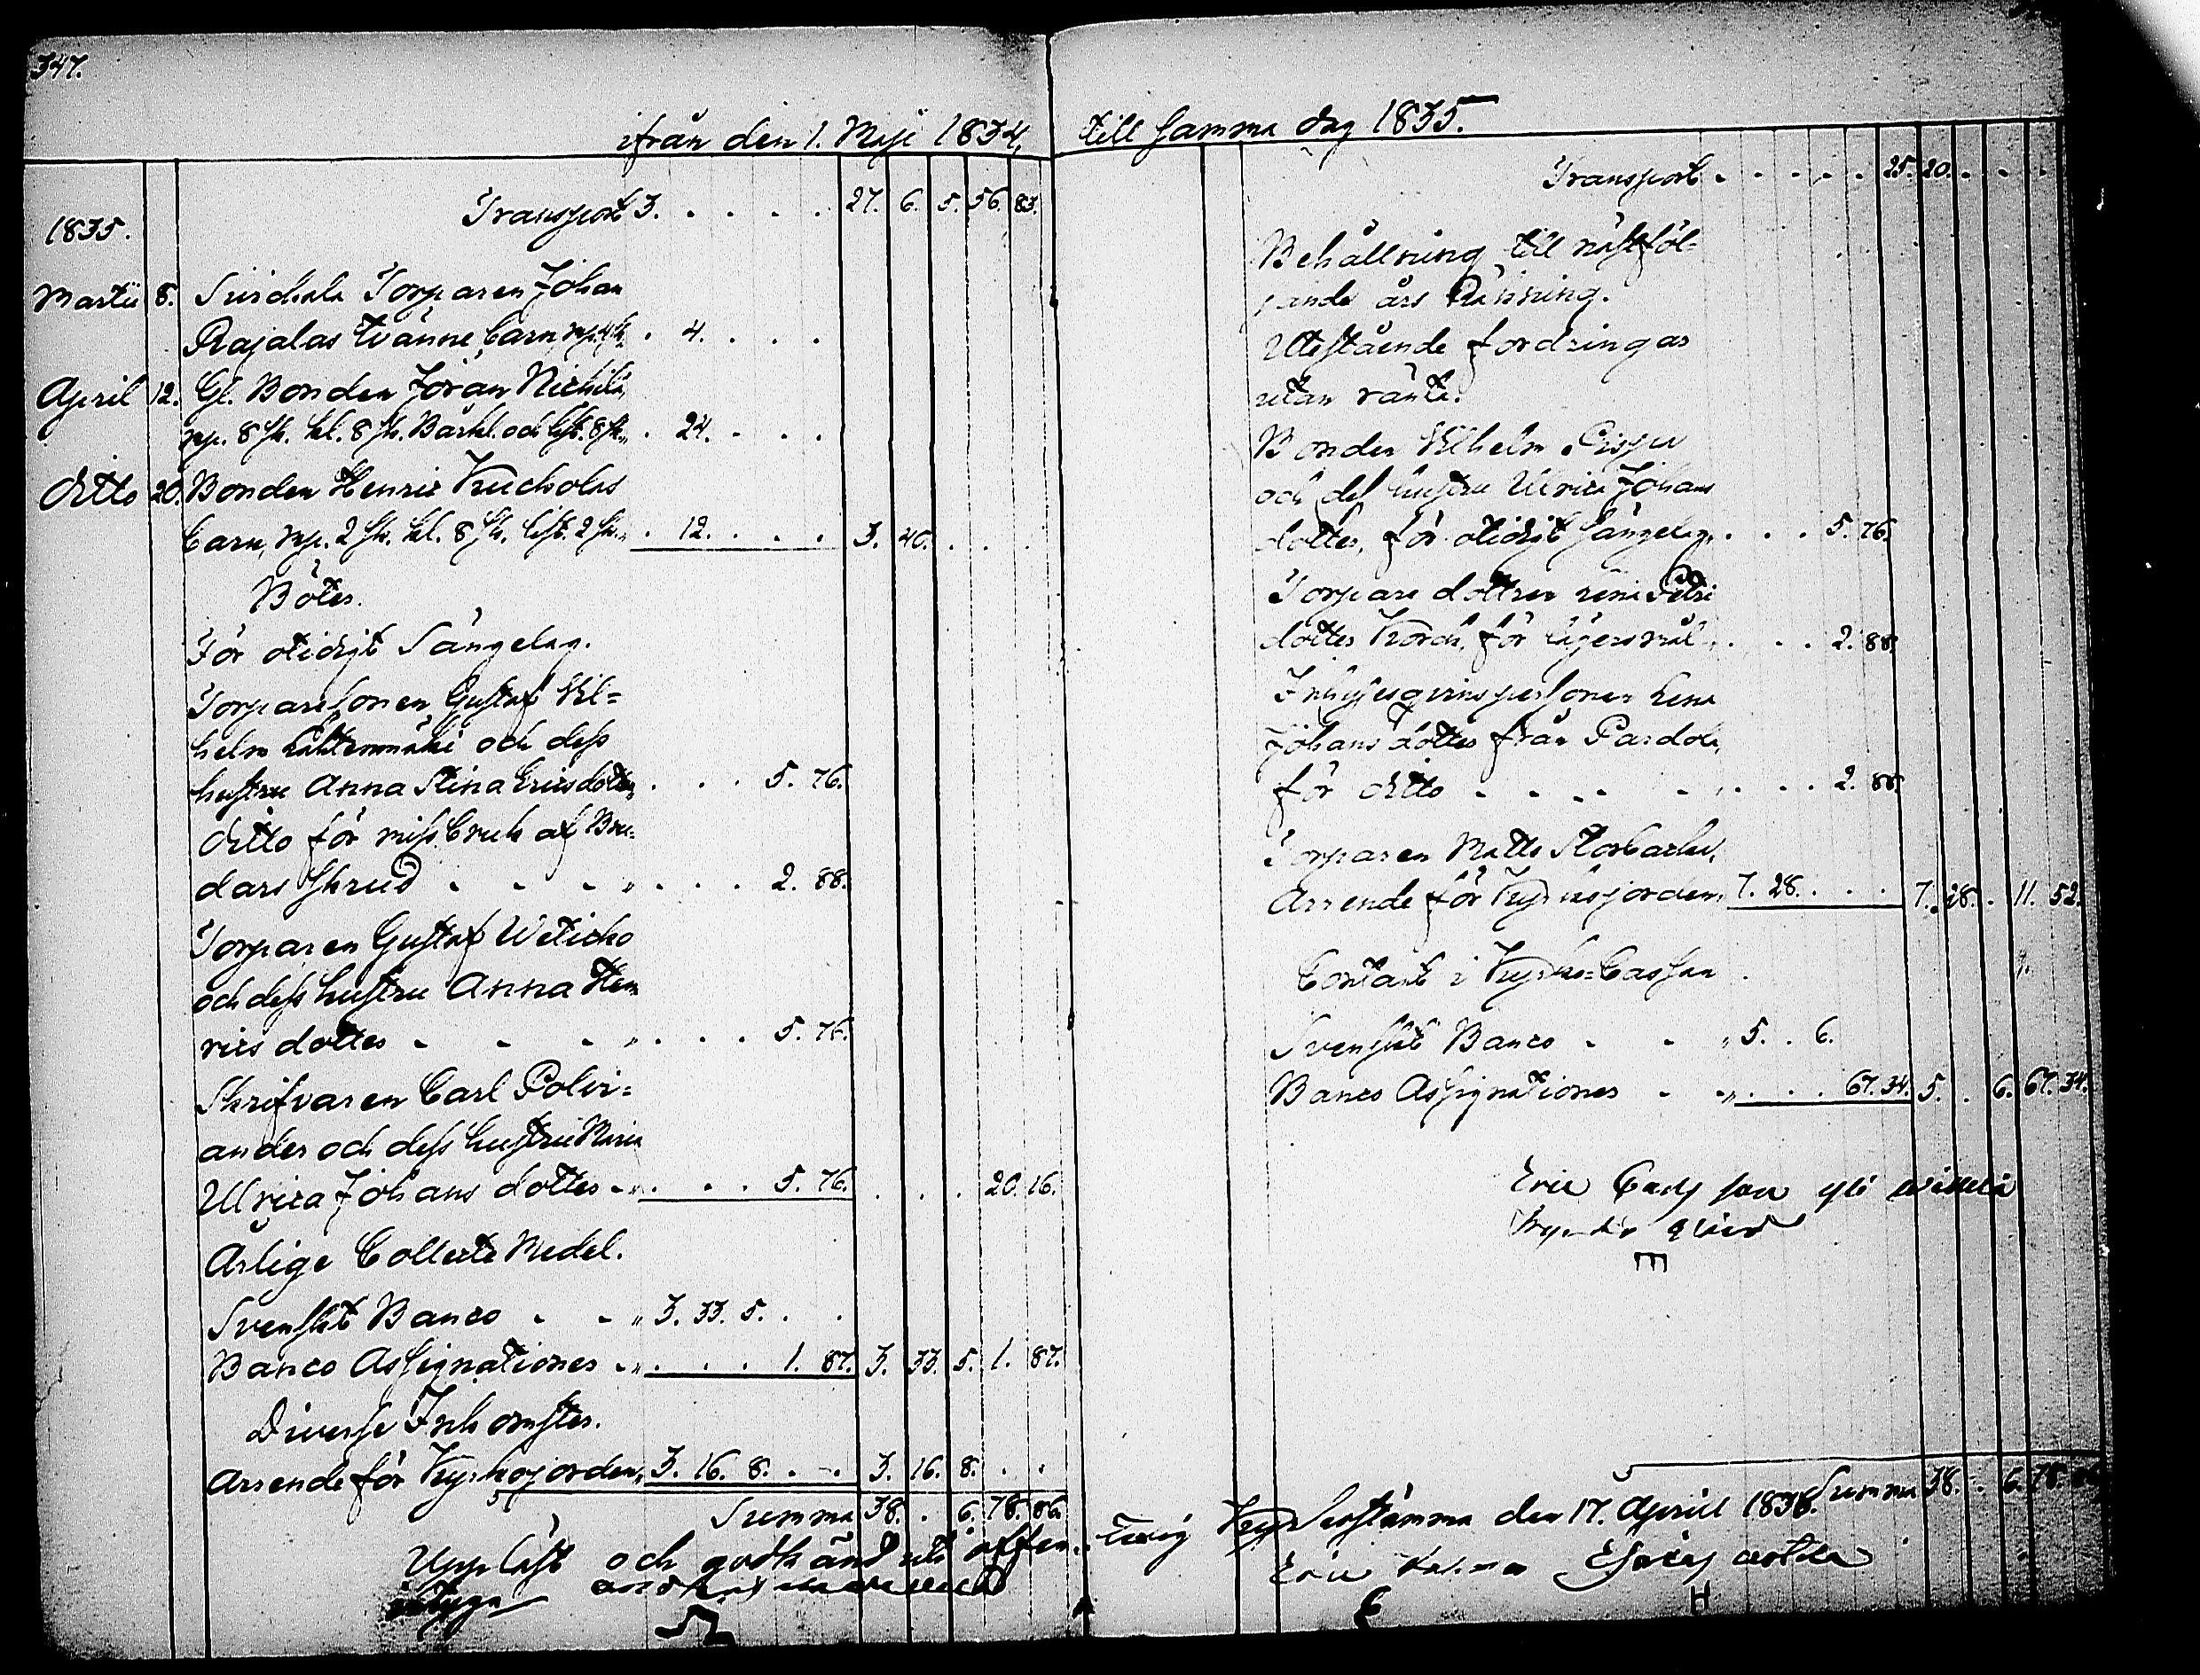 347.
ifrån den 1. Maji 1834,
Transport 3. . . . . 27. 6. 5. 56. 83.
1835.
Martii 8. Torparen Johan
Rajalas tvänne barn, rp. 4 sk. . 4. . . .
April 12. Gl. Bonden Jöran Nichilä,
rp. 8 sk. kl. 8 sk. Bårkl. och likst. 8 sk. . 24. . . .
ditto 20. Bonden Henric Kucholas
barn, rp. 2 sk. kl. 8 sk. likst. 2 sk. . 12. . . . 3. 40. . . .
Böter.
För otidigt Sängelag.
Torparesonen Gustaf Vil=
helm och dess
hustru Anna Stina Ericsdotter . . . 5. 76.
ditto för missbruk af Bru=
darskrud . . . . . . 2. 88.
Torparen Gustaf
och dess hustru Anna Hen
rics dotter . . . . . . 5. 76.
Skrifvaren Carl Polvi=
ander och dess hustru Maria
Ulrica Johans dotter . . . . 5. 76. . . . 20. 16.
Årlige Collecte Medel.
Svenskt Banco . . 3. 33. 5. . .
Banco Assignationer . . . . 1. 87. 3. 33. 5. 1. 87.
Diverse Inkomster.
Arrende för Kyrkojorden 3. 16. 8. . . 3. 16. 8. . .
Summa 38. . 6. 78. 86.
Uppläst och godkänd uti öffen-
intyga
till samma dag 1835.
Transport . . . . . 25. 20. . . .
Behållning till nästföl=
jande års Räkning.
Utestående fordringar
utan ränta.
Bonden Vilhelm Pispa
och dess hustru Ulrica Johans
dotter, för otidigt sängelag . . . 5. 76.
Torpare dottren Petri
dotter för lägersmål . . . 2. 88.
Inhysesqvinspersonen Lena
Johans dotter från
för ditto . . . . . . . . 2. 88.
Torparen Matts
Arrende för Kyrkojorden 7. 28. . . . 7. 28. . 11. 52.
Contant i Kyrko=Cassan .
Svenskt Banco . . 5. . 6.
Banco Assignationer . . . . . 67. 34. 5. . 6. 67. 34.
Eric
Summa 38. . 6. 78. 86
telig Kyrkostämma den 17. April 1836.
Eric
H